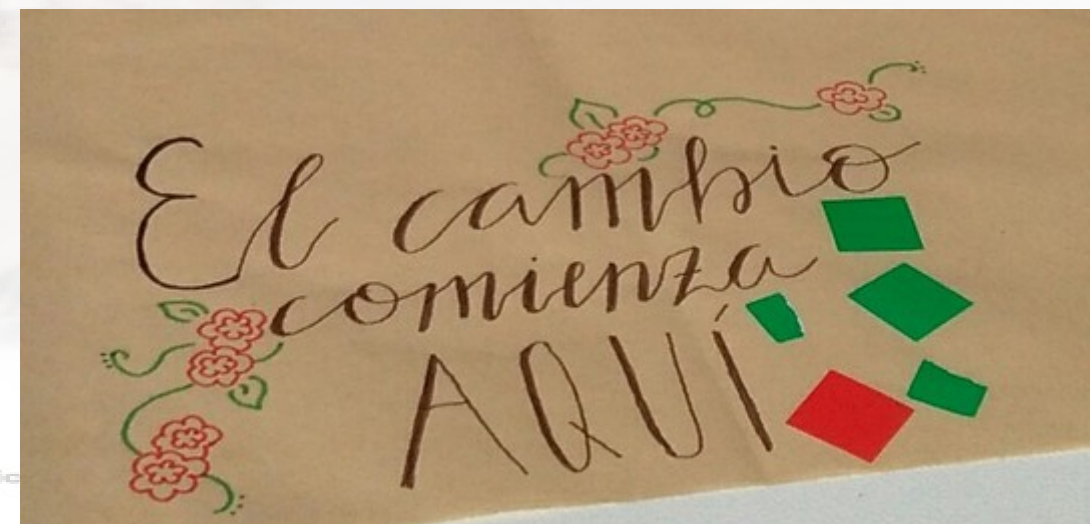 El cambio
comienza
AQUÍ